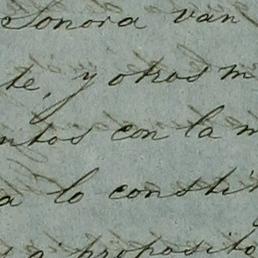 Sonora van
te, y otros m
ntos con la m
a lo consti
proposito